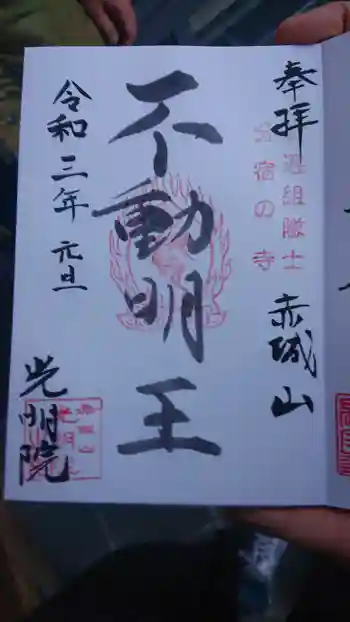 奉拝
赤城山
新選組隊士
分宿の寺
不動明王
令和三年 元旦
光明院